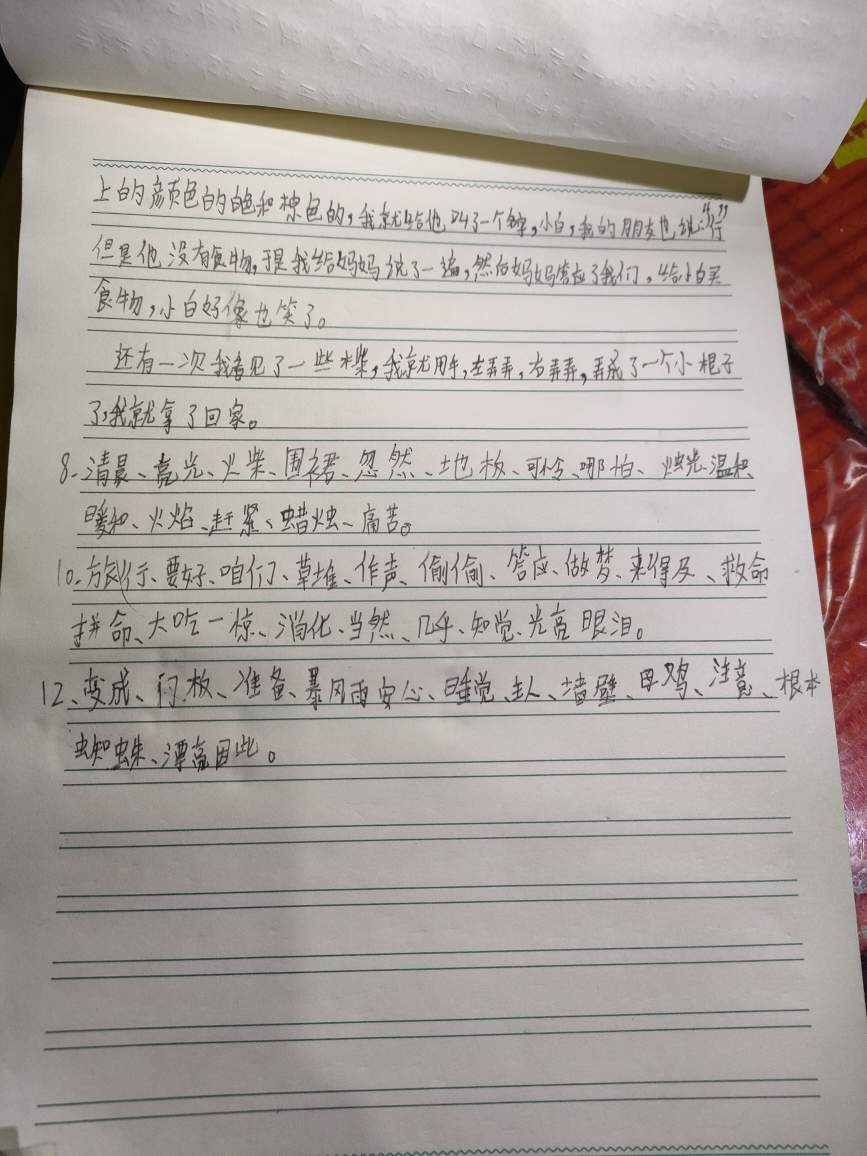 上的颜色的白色和棕色的，我就给他叫了一个名字，小白，我的朋友也说：“行”
但是他没有食物，于是我给妈妈说了一遍，然后妈妈答应了我们，给小白买
食物，小白好像也笑了。
还有一次我看见了一些木柴，我就用手，左弄弄，右弄弄，弄成了一个小棍子
了，我就拿了回家。
8、清晨、亮光、火柴、围裙、忽然、地板、可怜、哪怕、烛光、温和、
暖和、火焰、赶紧、蜡烛、痛苦。
10、旅行、要好、咱们、草堆、作声、偷偷、答应、做梦、来得及、救命
拼命、大吃一惊、消化、当然、几乎、知觉、光亮 眼泪。
12、变成、门板、准备、暴风雨 安心、睡觉、主人、墙壁、母鸡、注意、根本
蜘蛛、漂亮 因此。